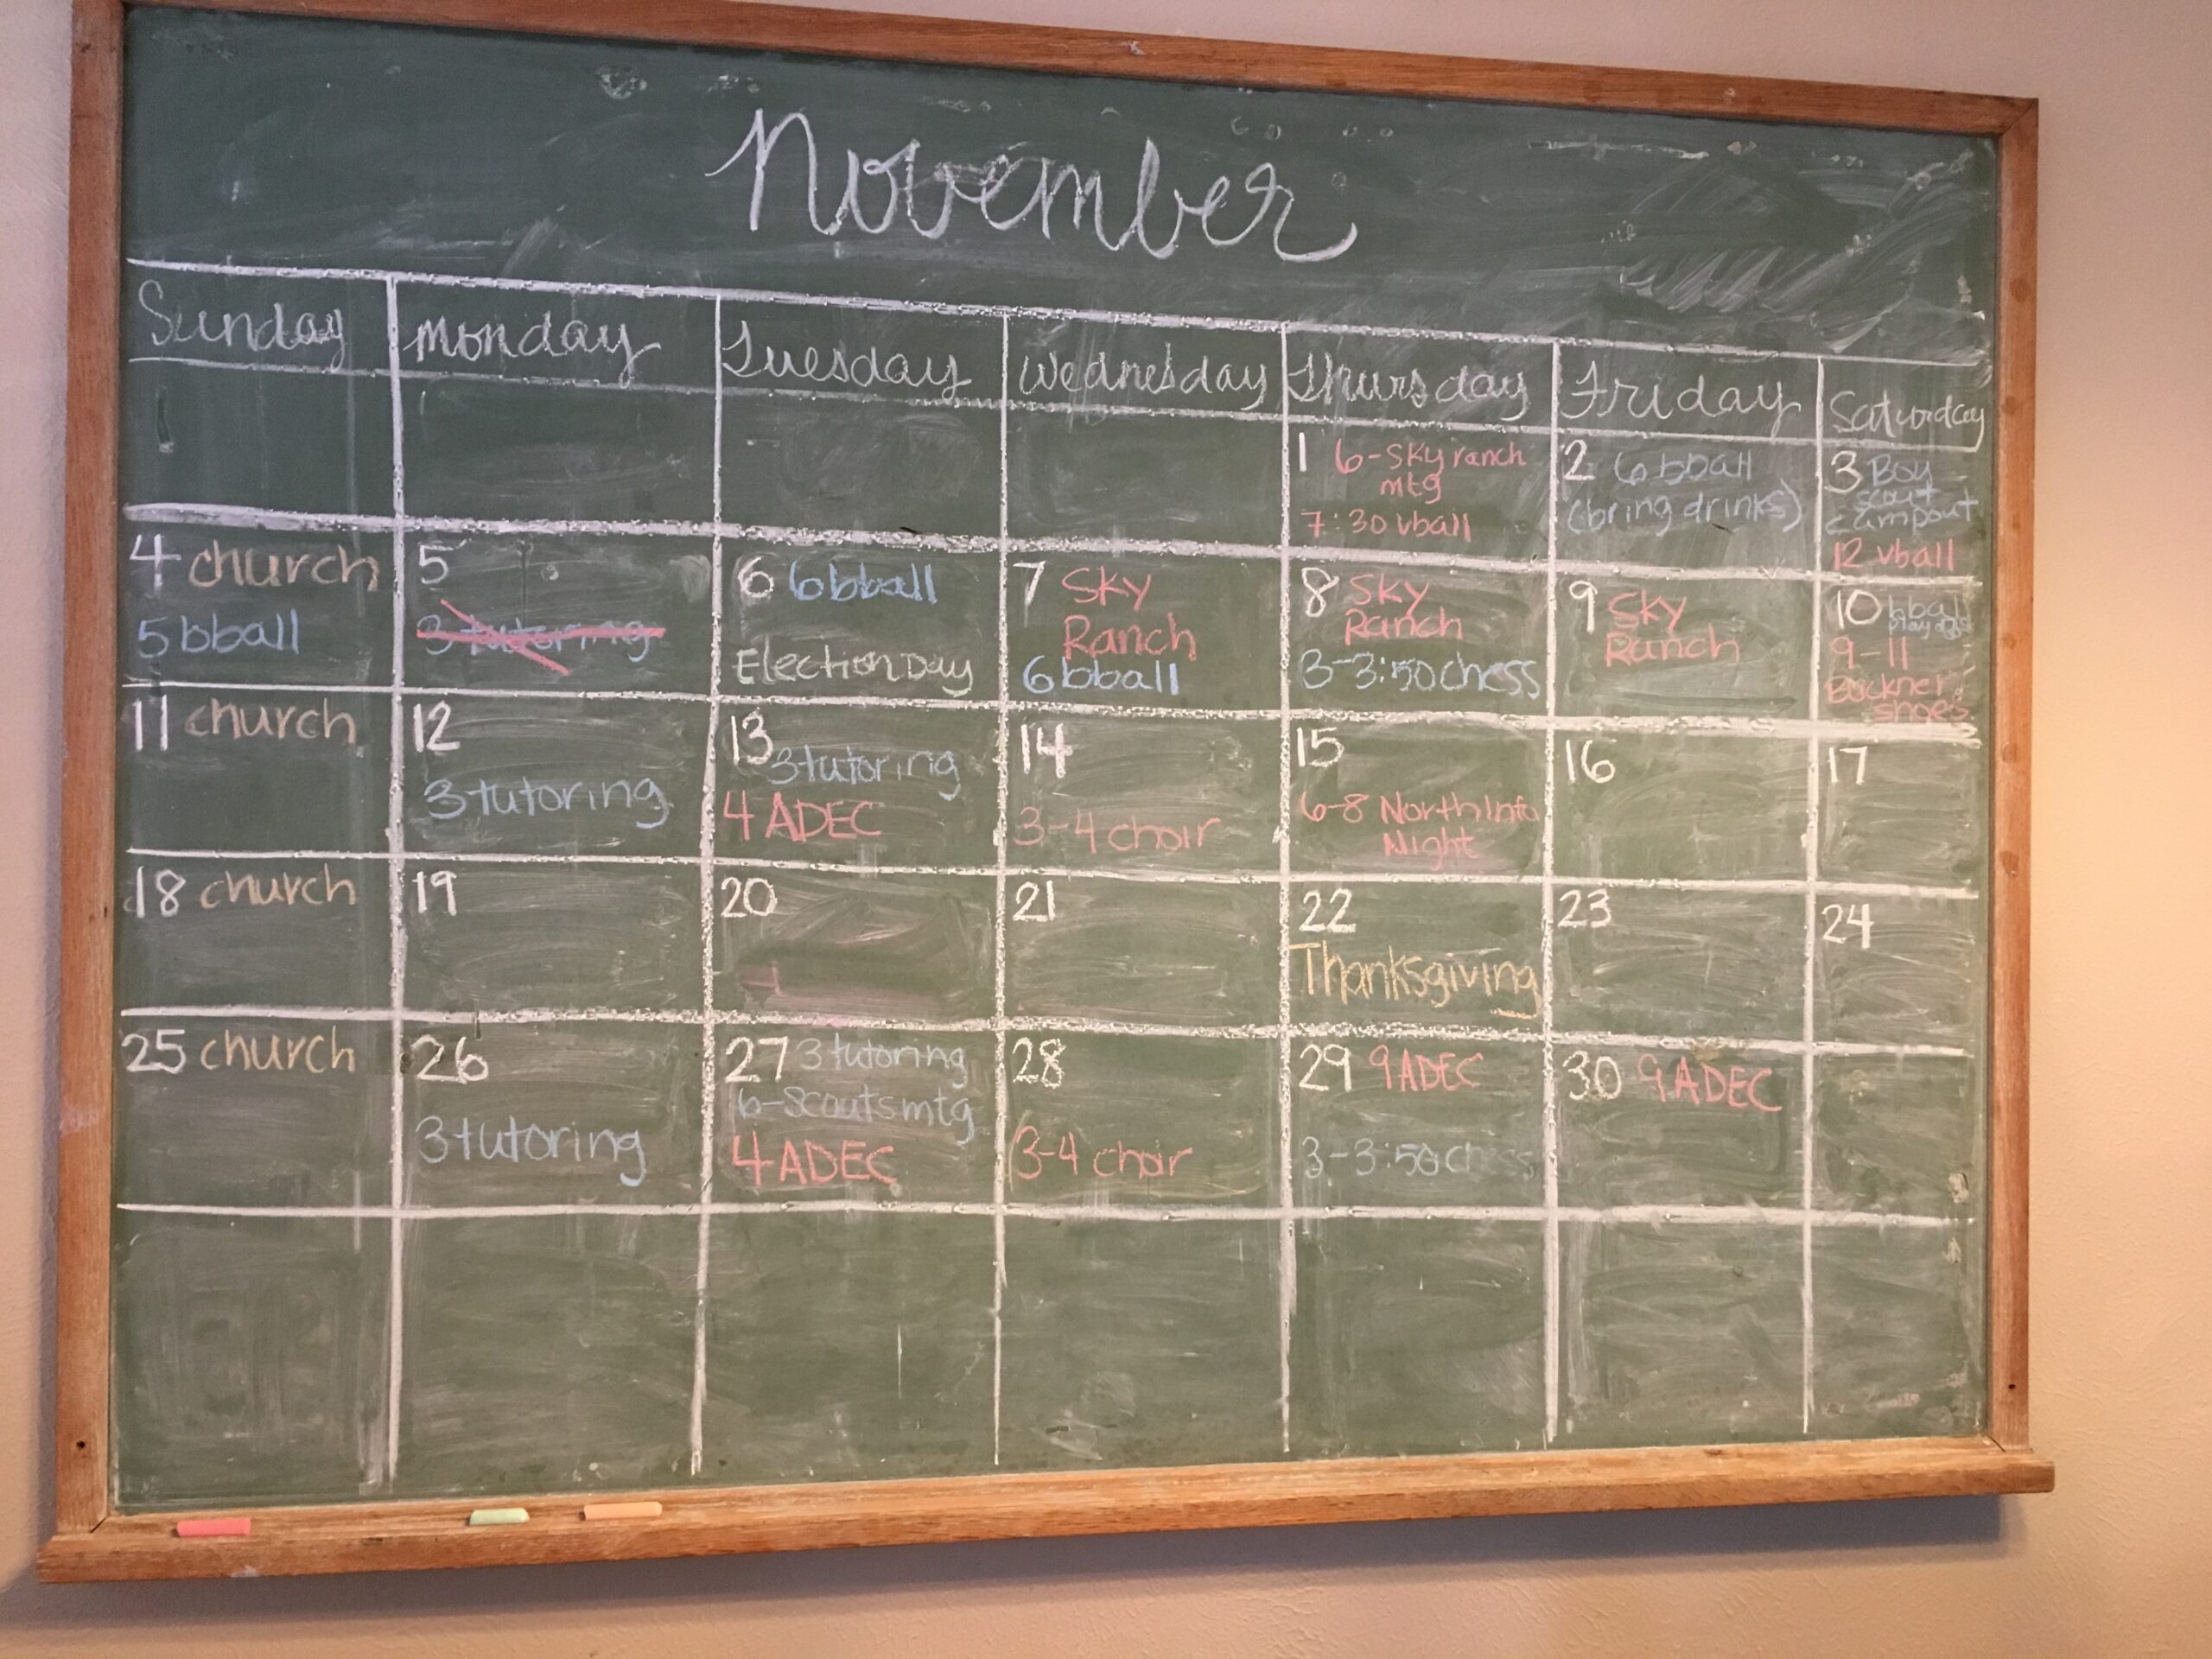 November
Sunday monday Tuesday Wednesday Thursday Friday Saturday
1 6-Sky ranch
mtg
7:30 vball
2 6 bball
(bring drinks)
3 Boy
scout
campout
12 vball
4 church
5 bball
5
3 tutoring
6 6 bball
Election Day
7 Sky
Ranch
6 bball
8 Sky
Ranch
3-3:50 chess
9 Sky
Ranch
10 bball
playoffs
9-11
Buckner
shoes
11 church
12
3 tutoring
13
3 tutoring
4 ADEC
14
3-4 choir
15
6-8 North Info
Night
16
17
18 church
19
20
21
22
Thanksgiving
23
24
25 church
26
3 tutoring
27 3 tutoring
6-Scouts mtg
4 ADEC
28
3-4 choir
29 9 ADEC
3-3:50 chess
30 9 ADEC